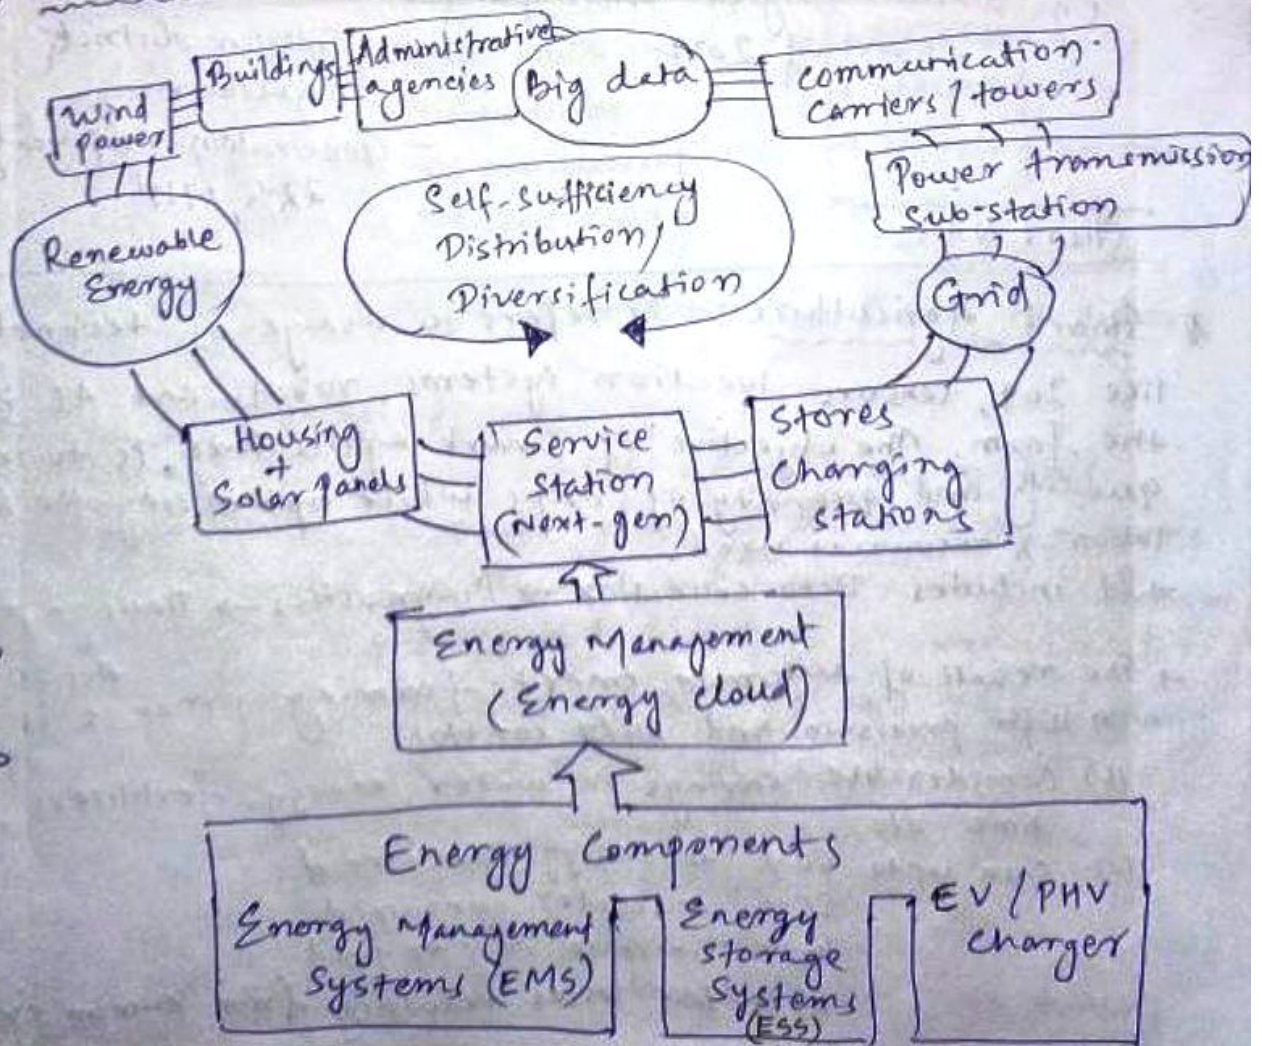 Wind
power
Buildings
Administrative
agencies
Big data
Communication
Carriers / towers
Power transmission
Sub-station
Renewable
Energy
Self-sufficiency
Distribution /
Diversification
Grid
Housing
+
Solar panels
Service
station
(Next-gen)
Stores
Charging
stations
Energy Management
(Energy cloud)
Energy Components
Energy Management
Systems (EMS)
Energy
storage
Systems
(ESS)
EV / PHV
Charger